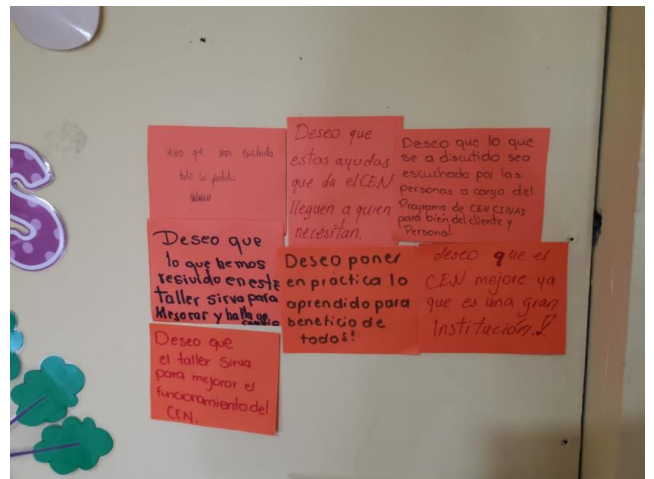 Deseo que
estas ayudas
que da el CEN
lleguen a quien
necesitan.
Deseo que lo que
se a discutido sea
escuchado por las
personas a cargo del
Programa de CEN CINAI
para bien del cliente y
Personal
Deseo que
lo que hemos
resivido en este
taller sirva para
Mejorar y halla un
cambio
Deseo poner
en práctica lo
aprendido para
beneficio de
todos!
deseo que el
CEN mejore ya
que es una gran
Institución.!
Deseo que
el taller sirva
para mejorar el
Funcionamiento del
CEN.